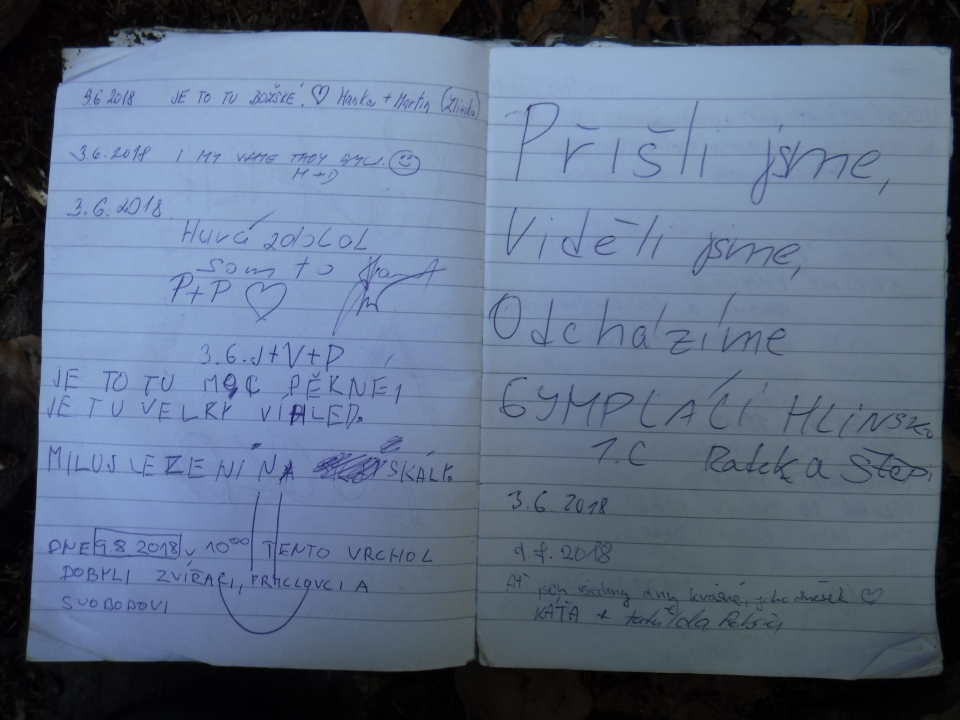 3.6.2018 JE TO TU BOŽSKÉ! ♡ Hanka + Martin
3.6.2018 I MY JSME TADY BYLI. ☺
M+D
3.6.2018.
Hurá zdolOL
som to
P+P ♡
3.6. J+V+P
JE TO TU MOC PĚKNÉ,
JE TU VELKÝ VÍHLED.
MILUJŠ LEZENÍ NA SKÁLK.
DNE 9.8 2018 v 10⁰⁰ TENTO VRCHOL
DOBYLI ZVÍŘÁCI, FRKLOVCI A
SVOBODOVI
Přišli jsme,
Viděli jsme,
Odcházíme
GYMPLÁCÍ HLÍNSKO
1.C Radka
3.6.2018
9.8.2018
AŤ jsou všedny dny krásné, jako dnešek ♡
KÁŤA +